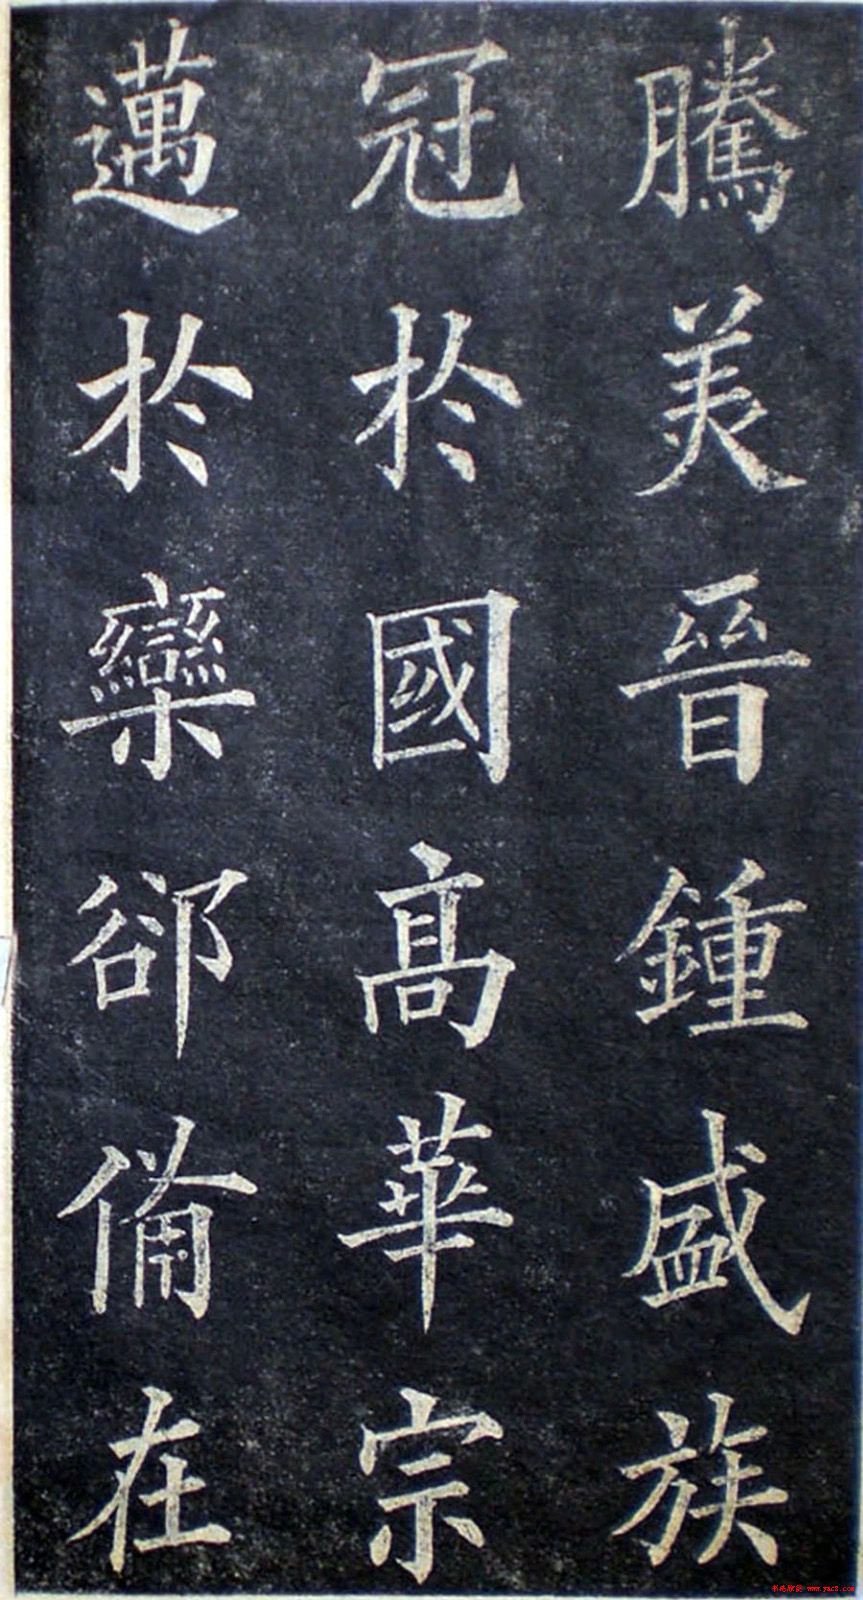 騰美晉鍾盛族
冠於國高華宗
邁於欒郤俻在
www.yac8.com